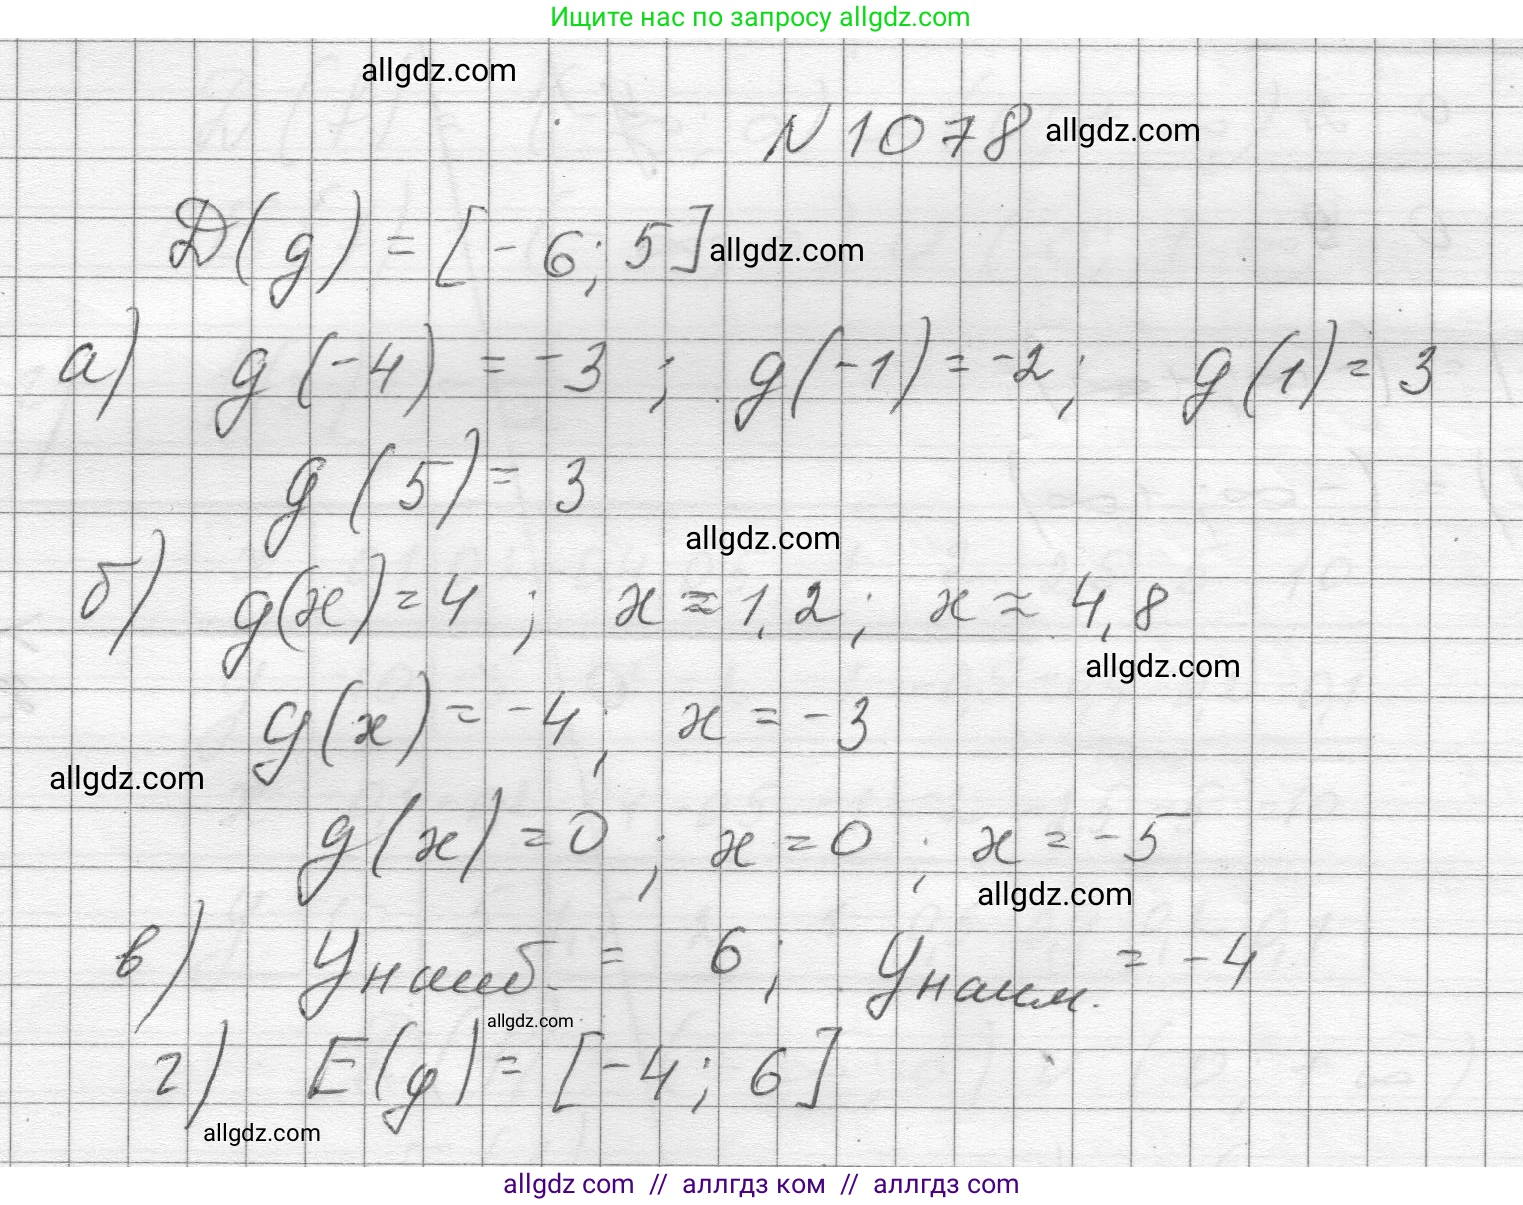 Ищите нас по запросу allgdz.com
allgdz.com
N 1078 allgdz.com
D(g) = [-6; 5] allgdz.com
а) g(-4) = -3 ; g(-1) = -2; g(1) = 3
g(5) = 3
allgdz.com
б) g(x) = 4 ; x ≈ 1,2; x ≈ 4,8
allgdz.com
g(x) = -4; x = -3
allgdz.com
g(x) = 0 ; x = 0 ; x = -5
allgdz.com
в) Унаиб. = 6; Унаим. = -4
allgdz.com
г) E(g) = [-4; 6]
allgdz.com
allgdz com // аллгдз ком // allgdz com